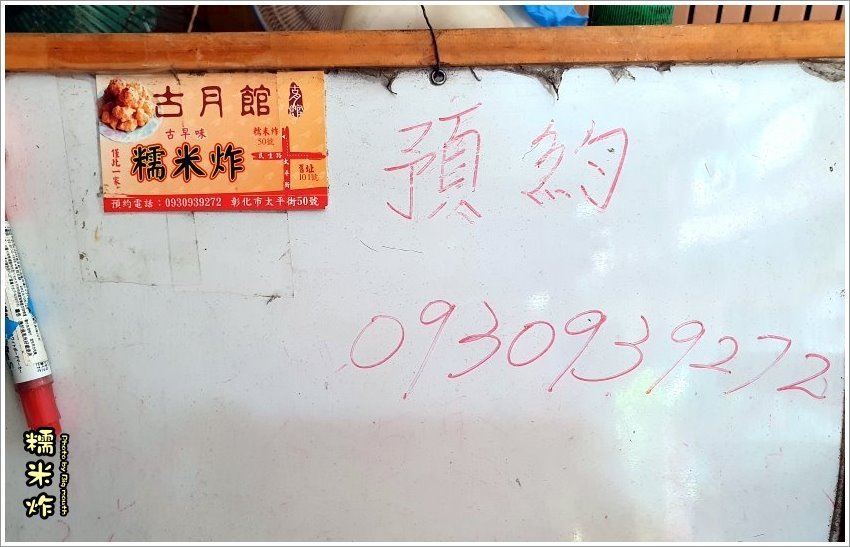 古月館
古早味
糯米炸
僅此一家
糯米炸
50號
民生路
太平街
舊址
101號
預約電話：0930939272 彰化市太平街50號
預約
0930939272
糯米炸
Photo by Big mouth